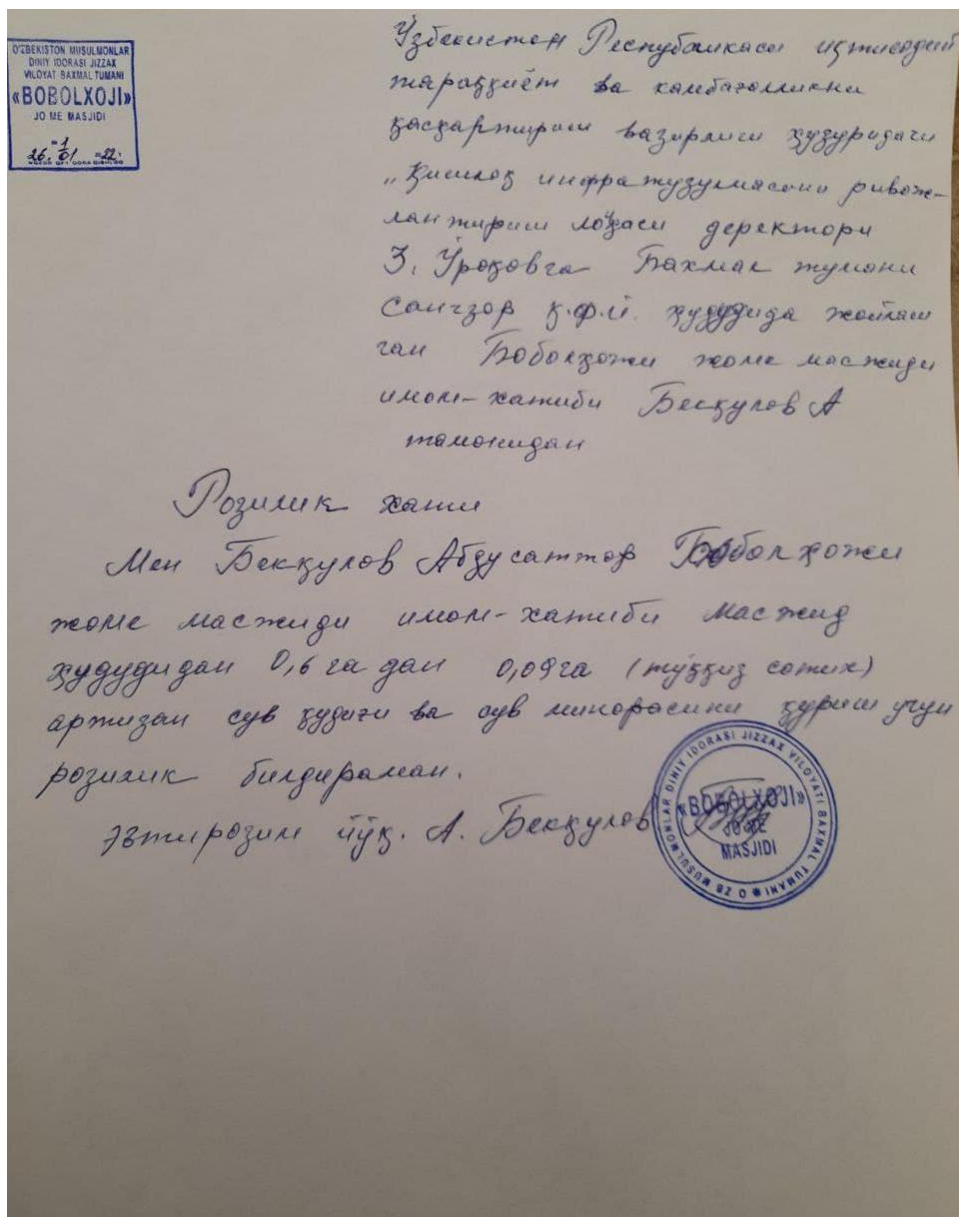 O'ZBEKISTON MUSULMONLAR
DINIY IDORASI JIZZAX
VILOYAT BAXMAL TUMANI
«BOBOLXOJI»
JO ME MASJIDI
=1
26. 01 =22.
Ўзбекистон Республикаси иқтисодий
тараққиёт ва камбағалликни
қасқартириш вазирлиги ҳузуридаги
„Қишлоқ инфратузулмасини ривож-
лантириш лоҳаси деректори
З. Ўроқовга Бахмал тумани
Сангзор қ.ф.й. ҳудудида жойлаш
ган Боболҳожи жоме масжиди
имом-хатиби Бекқулов А
томонидан
Розилик хати
Мен Бекқулов Абдусаттор Боболҳожи
жоме масжиди имом-хатиби масжид
ҳудудидан 0,6 га дан 0,09 га (тўққиз сотих)
артизан сув қудуғи ва сув минорасини қуриш учун
розилик билдираман.
Эътирозим йўқ. А. Бекқулов
O'ZB MUSULMONLAR DINIY IDORASI JIZZAX VILOYATI BAXMAL TUMANI
«BOBOLXOJI»
JO ME
MASJIDI